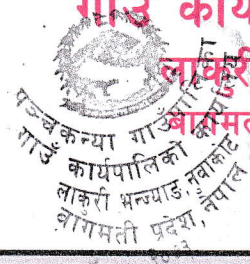 गाउँ कार्य
लाकुरी
बागमत
पञ्चकन्या गाउँपालिका
गाउँ कार्यपालिकाको कार्यालय
लाकुरी भन्ज्याङ, नुवाकोट
बागमती प्रदेश, नेपाल